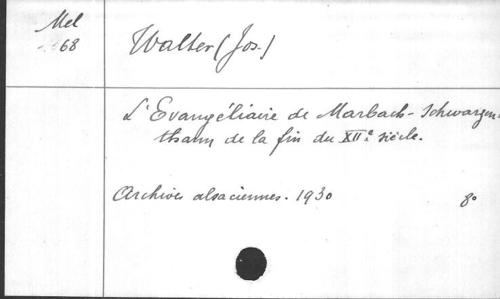 Mel
68
Walter (Jos.)
L'Evangéliaire de Marbach-Schwarzen-
thann de la fin du XIIe siècle.
Archives alsaciennes. 1930 8°